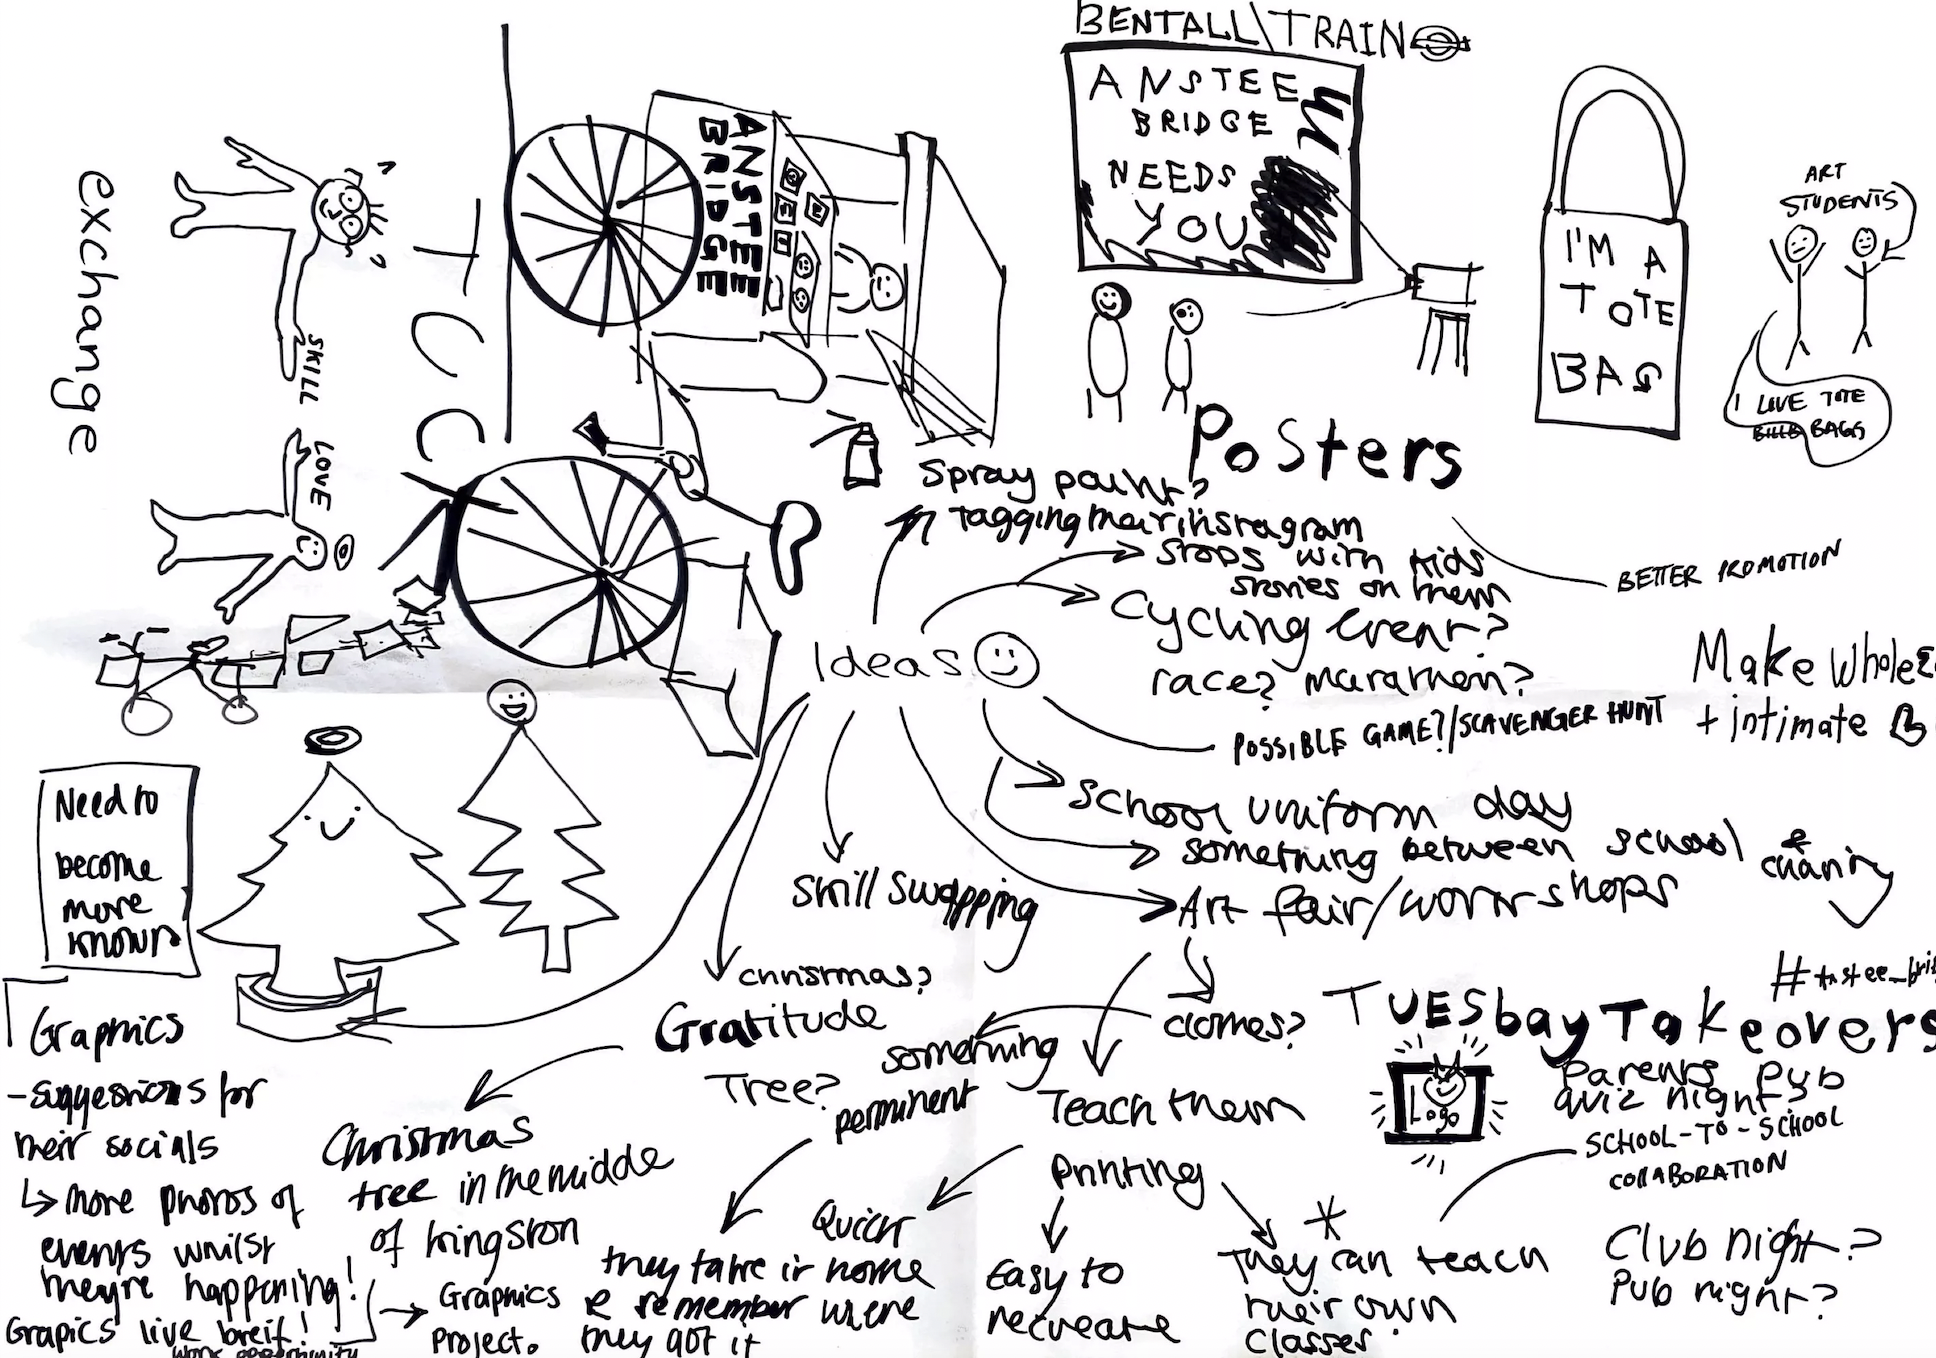 BENTALL\TRAIN
ANSTEE
BRIDGE
NEEDS
YOU
I'M A
TOTE
BAG
ART
STUDENTS
I LOVE TOTE
BAGS
exchange
SKILL
LOVE
ANSTEE
BRIDGE
Posters
Spray paint?
tagging their instagram
stops with kids
stories on them
cycling event?
race? marathon?
BETTER PROMOTION
Ideas
Make whole
+ intimate
POSSIBLE GAME?/SCAVENGER HUNT
School uniform day
something between school &
charity
Art fair/workshops
Skill Swapping
Need to
become
more
known
christmas?
Gratitude
Tree?
something
perminent
clothes?
Teach them
printing
Quick
Easy to
recreate
*
They can teach
their own
classes.
they take it home
& remember where
they got it
Christmas
tree in the middle
of kingston
Graphics
-suggestions for
their socials
↳ more photos of
events whilst
they're happening!
Grapics live breif!
work opportunity
→ Graphics
project.
#anstee_bri
TUESDAY Takeovers
Logo
Parents pub
quiz night?
SCHOOL-TO-SCHOOL
COLLABORATION
Club night?
Pub night?